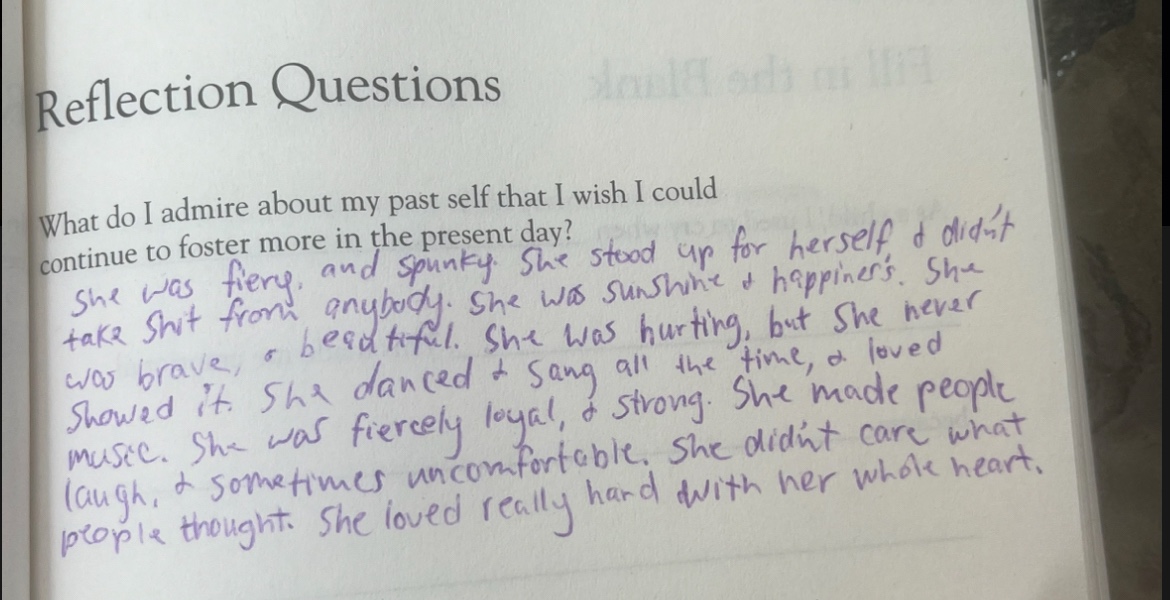 Fill in the Blank
Reflection Questions
What do I admire about my past self that I wish I could
continue to foster more in the present day?
She was fiery, and spunky. She stood up for herself, & didn't
take shit from anybody. She was sunshine & happiness. She
was brave, & beautiful. She was hurting, but she never
showed it. She danced & sang all the time, & loved
music. She was fiercely loyal, & strong. She made people
laugh, & sometimes uncomfortable. She didn't care what
people thought. She loved really hard with her whole heart.